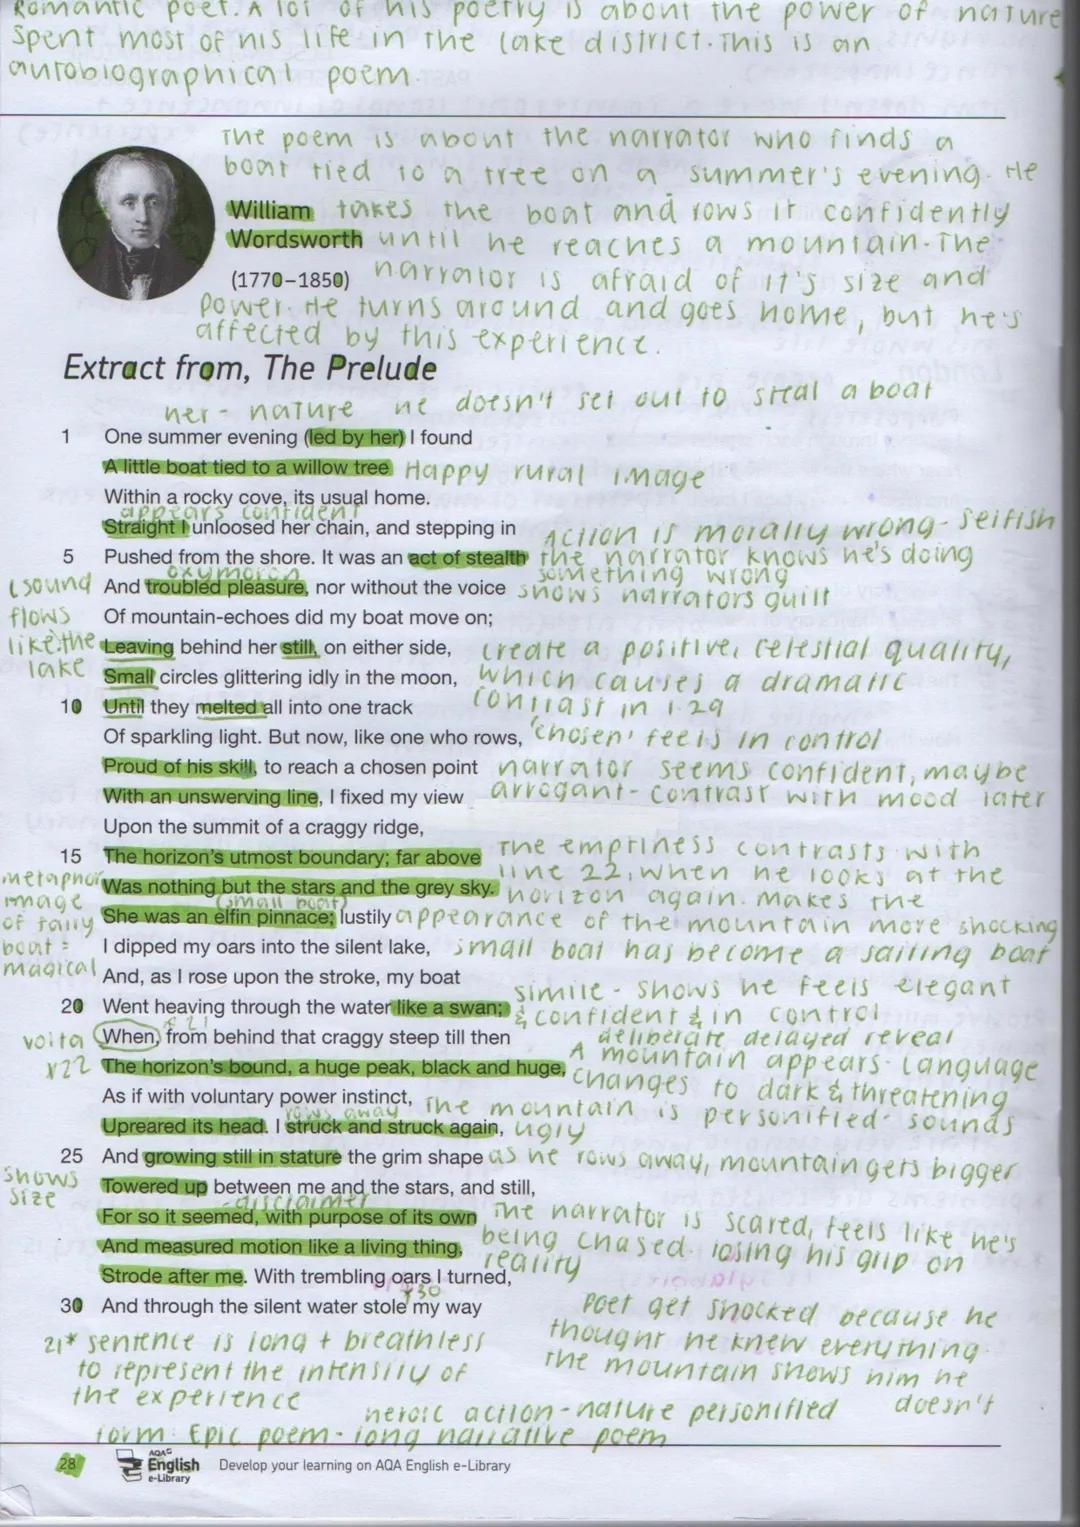 Romantic poet. A lot of his poetry is about the power of nature
Spent most of his life in the lake district. This is an
autobiographical poem.
The poem is about the narrator who finds a
boat tied to a tree on a summer's evening. He
William takes the boat and rows it confidently
Wordsworth until he reaches a mountain. The
(1770–1850) narrator is afraid of it's size and
power. He turns around and goes home, but he's
affected by this experience.
Extract from, The Prelude
her - nature he doesn't set out to steal a boat
1 One summer evening (led by her) I found
A little boat tied to a willow tree Happy rural image
Within a rocky cove, its usual home.
appears confident
Straight I unloosed her chain, and stepping in Action is morally wrong - selfish
5 Pushed from the shore. It was an act of stealth the narrator knows he's doing
oxymoron something wrong
And troubled pleasure, nor without the voice shows narrators guilt
Of mountain-echoes did my boat move on;
l sound
flows
like the
lake
Leaving behind her still, on either side, create a positive, celestial quality,
Small circles glittering idly in the moon, which causes a dramatic
10 Until they melted all into one track contrast in l.29
Of sparkling light. But now, like one who rows, 'chosen' feels in control
Proud of his skill, to reach a chosen point narrator seems confident, maybe
With an unswerving line, I fixed my view arrogant - contrast with mood later
Upon the summit of a craggy ridge,
15 The horizon's utmost boundary; far above The emptiness contrasts with
Was nothing but the stars and the grey sky. line 22, when he looks at the
(small boat) horizon again. makes the
She was an elfin pinnace; lustily appearance of the mountain more shocking
metaphor
image
of fairy
boat =
magical
I dipped my oars into the silent lake, small boat has become a sailing boat
And, as I rose upon the stroke, my boat
20 Went heaving through the water like a swan; simile - shows he feels elegant
& confident & in control
* 21
volta When, from behind that craggy steep till then deliberate delayed reveal
x22 The horizon's bound, a huge peak, black and huge, A mountain appears - language
As if with voluntary power instinct, changes to dark & threatening
rows away The mountain is personified - sounds
Upreared its head. I struck and struck again, ugly
25 And growing still in stature the grim shape as he rows away, mountain gets bigger
shows
size
Towered up between me and the stars, and still,
disclaimer
For so it seemed, with purpose of its own The narrator is scared, feels like he's
And measured motion like a living thing, being chased. losing his grip on
Strode after me. With trembling oars I turned, reality
30 And through the silent water stole my way
21* sentence is long + breathless
to represent the intensity of
the experience
Poet get shocked because he
thought he knew everything.
The mountain shows him he
doesn't
heroic action - nature personified
form: Epic poem - long narrative poem
28 AQA English e-Library Develop your learning on AQA English e-Library